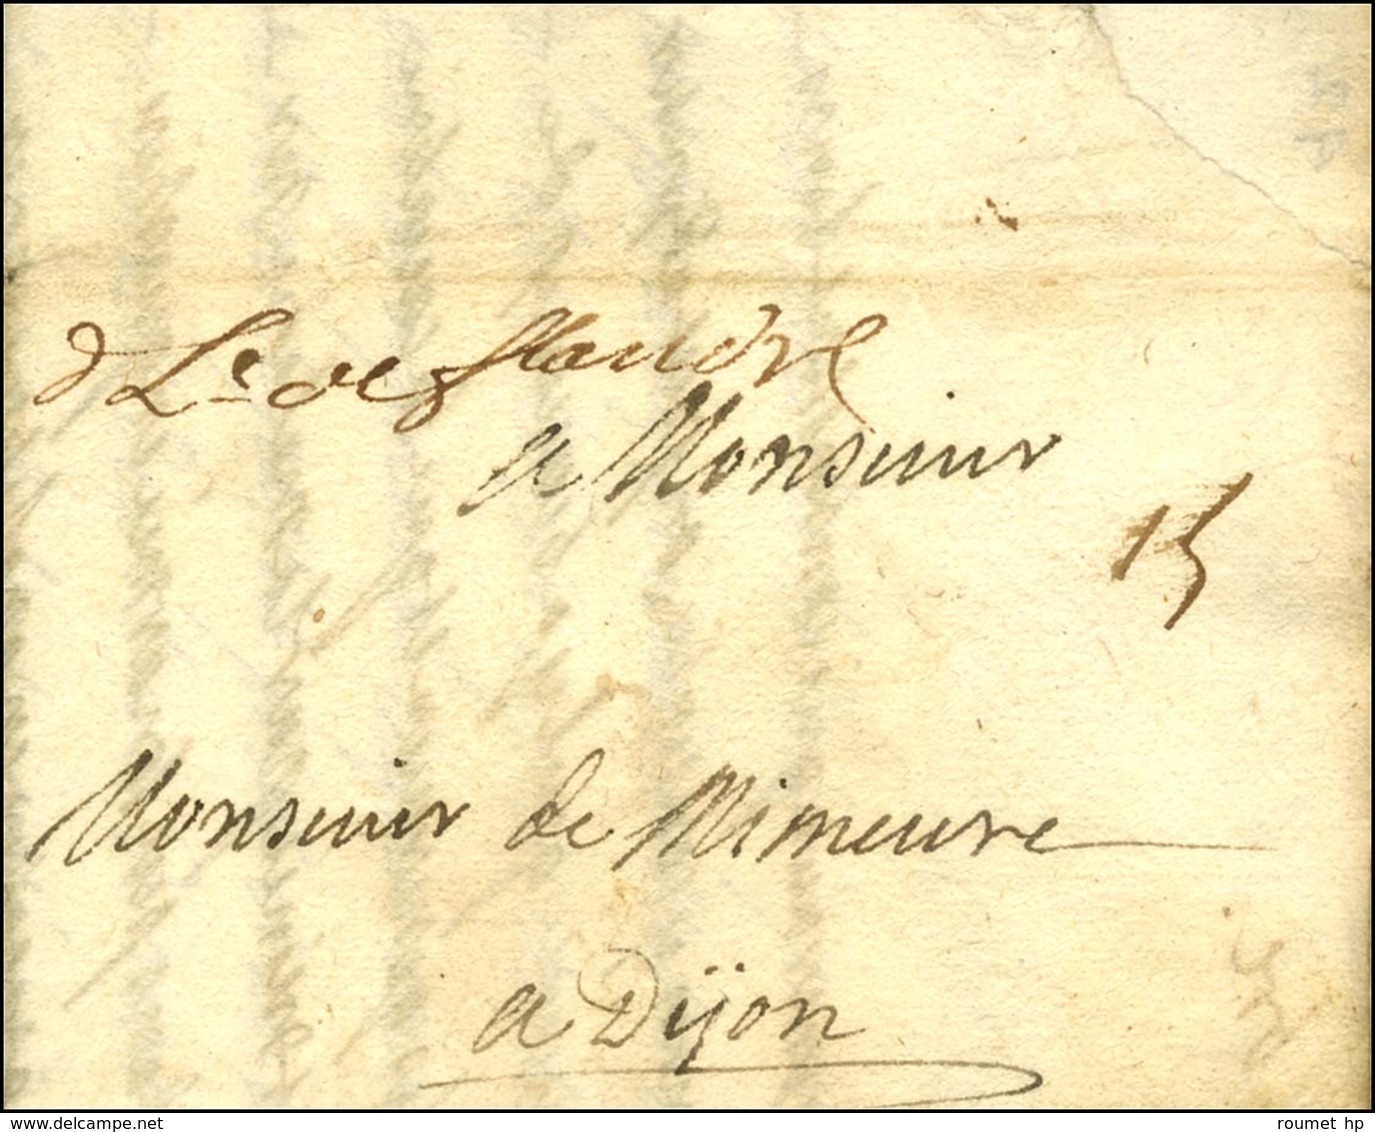 d Lr. de flandre
a Monsieur
15
Monsieur de Mimeure
a Dijon
www.delcampe.net
roumet hp